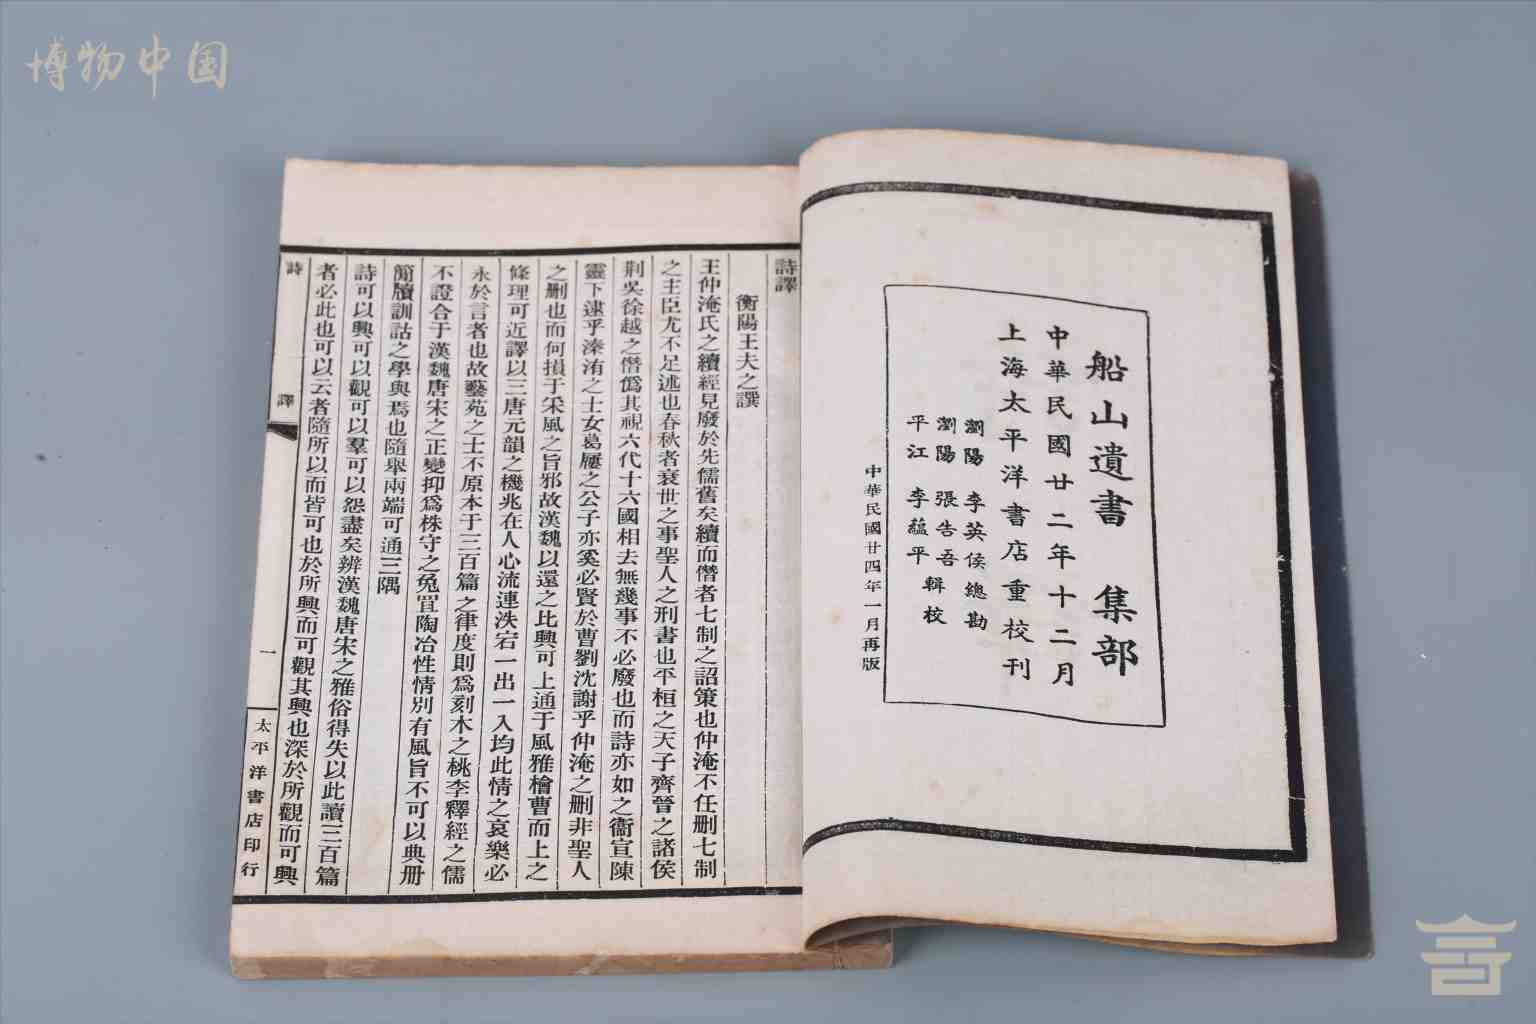 博物中国
船山遺書 集部
中華民國廿二年十二月
上海太平洋書店重校刊
瀏陽 李英侯總勘
瀏陽 張告吾
平江 李蘊平
輯校
中華民國廿四年一月再版
詩譯
衡陽王夫之譔
王仲淹氏之續經見廢於先儒舊矣續而僭者七制之詔策也仲淹不任刪七制
之主臣尤不足述也春秋者衰世之事聖人之刑書也平桓之天子齊晉之諸侯
荆吳徐越之僭僞其視六代十六國相去無幾事不必廢也而詩亦如之衞宣陳
靈下逮乎溱洧之士女葛屨之公子亦奚必賢於曹劉沈謝乎仲淹之刪非聖人
之刪也而何損于采風之旨邪故漢魏以還之比興可上通于風雅檜曹而上之
條理可近譯以三唐元韻之機兆在人心流連泆宕一出一入均此情之哀樂必
永於言者也故藝苑之士不原本于三百篇之律度則爲刻木之桃李釋經之儒
不證合于漢魏唐宋之正變抑爲株守之兔罝陶冶性情別有風旨不可以典册
簡牘訓詁之學與焉也隨舉兩端可通三隅
詩可以興可以觀可以羣可以怨盡矣辨漢魏唐宋之雅俗得失以此讀三百篇
者必此也可以云者隨所以而皆可也於所興而可觀其興也深於所觀而可興
詩譯
一
太平洋書店印行